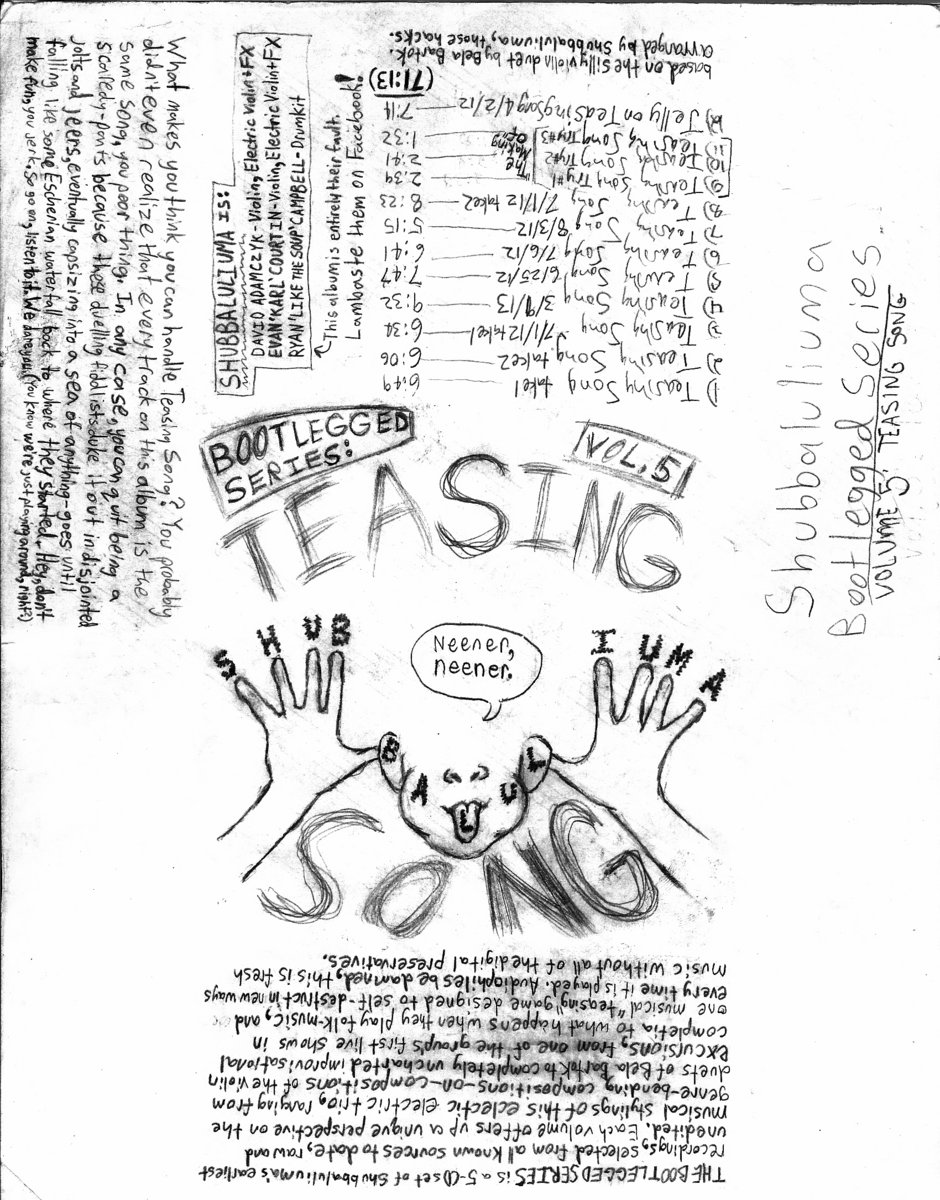 BOOTLEGGED
SERIES:
VOL. 5
TEASING
Neener,
neener.
S H U B
B A L U L
I U M A
SONG
What makes you think you can handle Teasing Song? You probably
didn't even realize that every track on this album is the
same song, you poor thing. In any case, you can quit being a
sicaledy-pants because these duelling fiddlists duke it out in disjointed
jolts and jeers, eventually capsizing into a sea of anything-goes until
falling like some Escherian waterfall back to where they started. Hey, don't
make fun, you jerk. So go on, listen to it. We dare you. (You know we're just playing around, right?)
SHUBBALULIUMA IS:
DAVID ADAMCZYK - Violin, Electric Violin+FX
EVAN 'KARL' COURTIN - Violin, Electric Violin+FX
RYAN 'LIKE THE SOUP' CAMPBELL - Drumkit
This album is entirely their fault.
Lambaste them on Facebook!
1) Teasing Song take1 6:49
2) Teasing Song take2 6:06
3) Teasing Song 7/1/12 take1 6:34
4) Teasing Song 3/9/13 9:32
5) Teasing Song 6/25/12 7:47
6) Teasing Song 7/6/12 6:41
7) Teasing Song 8/3/12 5:15
8) Teasing Song 7/1/12 take2 8:23
9) Teasing Song Try #1 2:39
10) Teasing Song Try #2 2:41
11) Teasing Song Try #3 1:32
"The
Making
of"
12) Jelly on Teasing Song 4/2/12 7:14
(71:13)
based on the silly violin duet by Bela Bartok.
arranged by Shubbaluliuma, those hacks.
Shubbaluliuma
Bootlegged Series
VOLUME 5: TEASING SONG
THE BOOTLEGGED SERIES is a 5-CD set of Shubbaluliuma's earliest
recordings, selected from all known sources to date, raw and
unedited. Each volume offers up a unique perspective on the
musical stylings of this eclectic electric trio, ranging from
genre-bending compositions-on-compositions of the violin
duets of Bela Bartok to completely uncharted improvisational
excursions, from one of the group's first live shows in
completia to what happens when they play folk-music, and
one musical "teasing" game designed to self-destruct in new ways
every time it is played. Audiophiles be damned, this is fresh
music without all of the digital preservatives.